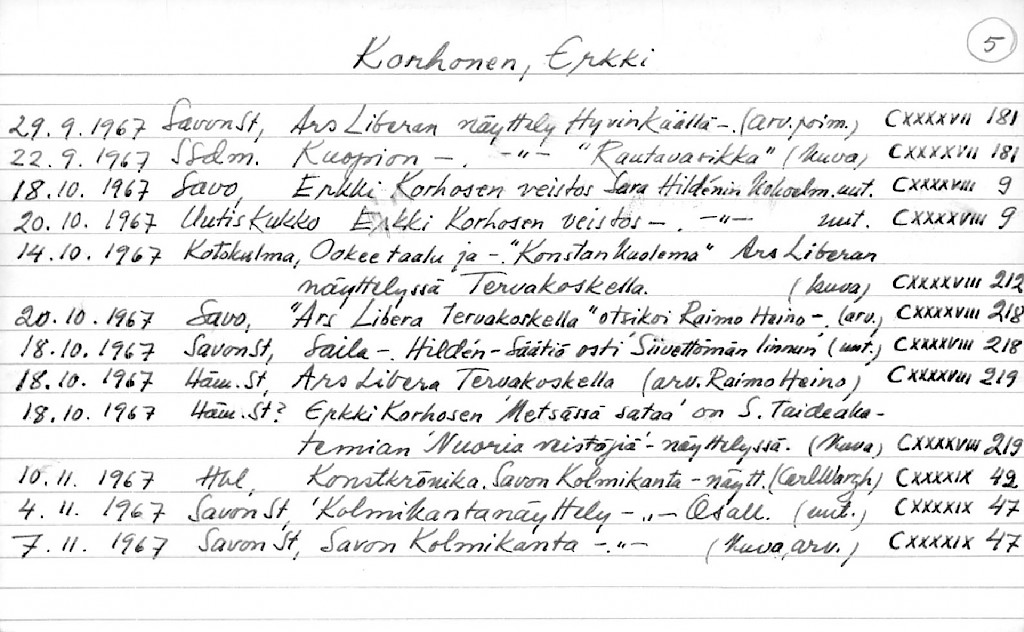 5
Korhonen, Erkki
29.9.1967 SavonSt, Ars Liberan näyttely Hyvinkäällä -. (arv.poim.) CXXXXVII 181
22.9.1967 SSdm. Kuopion -. -"- "Rautavarikka" (kuva) CXXXXVII 181
18.10.1967 Savo, Erkki Korhosen veistos Sara Hildénin kokoelm. uut. CXXXXVIII 9
20.10.1967 Uutiskukko Erkki Korhosen veistos -. -"- uut. CXXXXVIII 9
14.10.1967 Kotokulma, Ookee taalu ja -. "Konstan kuolema" Ars Liberan
näyttelyssä Tervakoskella. (kuva) CXXXXVIII 212
20.10.1967 Savo, "Ars Libera Tervakoskella" otsikoi Raimo Heino -. (arv.) CXXXXVIII 218
18.10.1967 SavonSt, Saila -. Hildén-Säätiö osti 'Siivettömän linnun' (uut.) CXXXXVIII 218
18.10.1967 Häm.St, Ars Libera Tervakoskella (arv. Raimo Heino) CXXXXVIII 219
18.10.1967 Häm.St? Erkki Korhosen 'Metsässä sataa' on S. Taideaka-
temian 'Nuoria veistäjiä' - näyttelyssä. (kuva) CXXXXVIII 219
10.11.1967 Hbl, Konstkrönika. Savon Kolmikanta - näytt. (Carl Wargh) CXXXXIX 42
4.11.1967 SavonSt, 'Kolmikantanäyttely -"- Osall. (uut.) CXXXXIX 47
7.11.1967 SavonSt, Savon Kolmikanta -."- (kuva, arv.) CXXXXIX 47